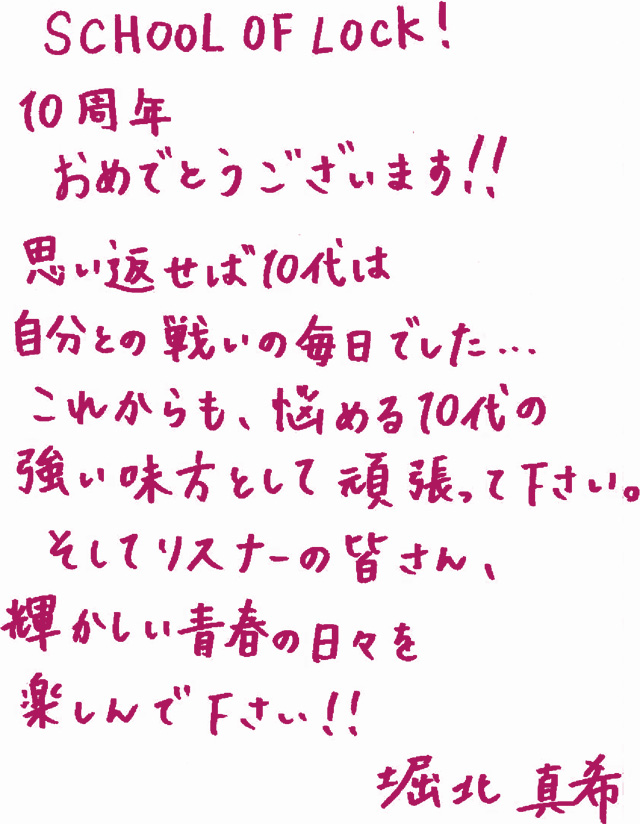 SCHOOL OF LOCK!
10周年
おめでとうございます!!
思い返せば10代は
自分との戦いの毎日でした…
これからも、悩める10代の
強い味方として頑張って下さい。
そしてリスナーの皆さん、
輝かしい青春の日々を
楽しんで下さい!!
堀北 真希